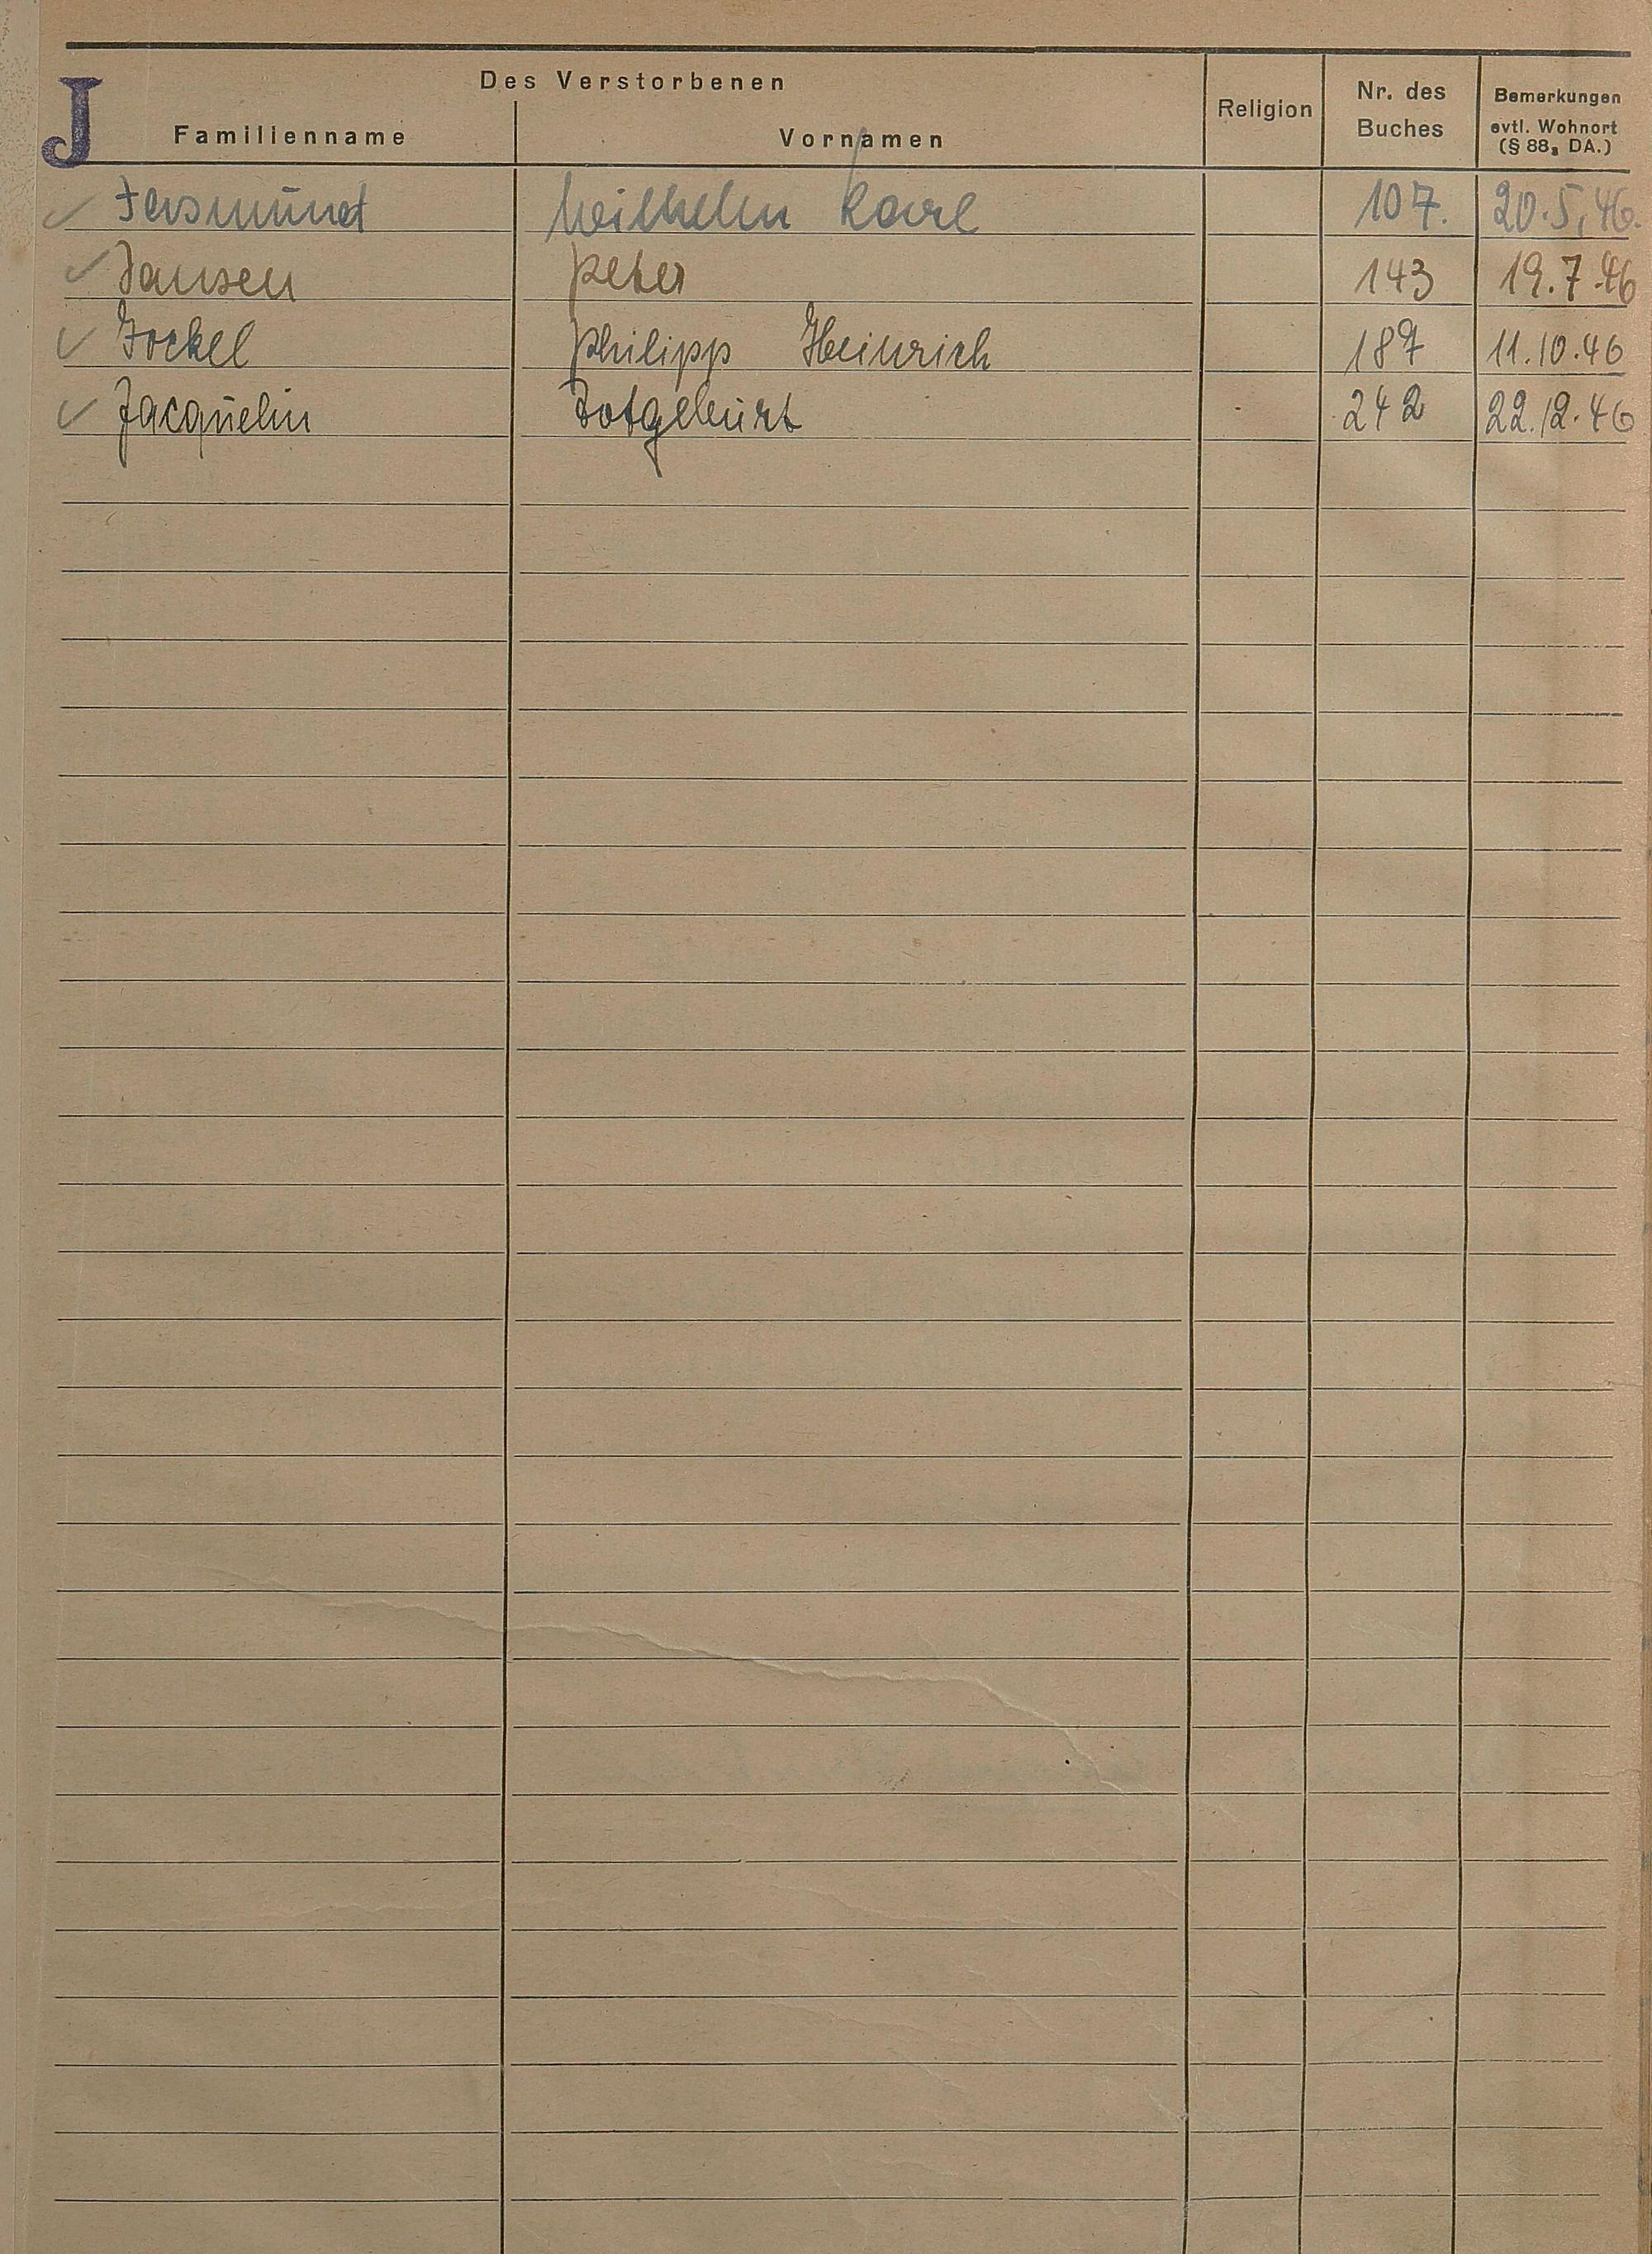 J
Des Verstorbenen
Familienname Vornamen Religion Nr. des Buches Bemerkungen evtl. Wohnort (§ 88, DA.)
✓ Jersmund Wilhelm Karl 107. 20.5.46.
✓ Jansen Peter 143 19.7.46
✓ Jockel Philipp Heinrich 187 11.10.46
✓ Jacquelin Totgeburt - 242 22.12.46